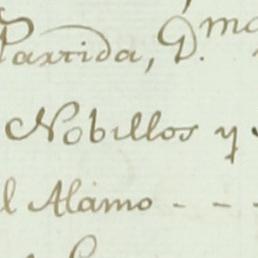 Partida, G.mo
Nobillos y
l Alamo - - -